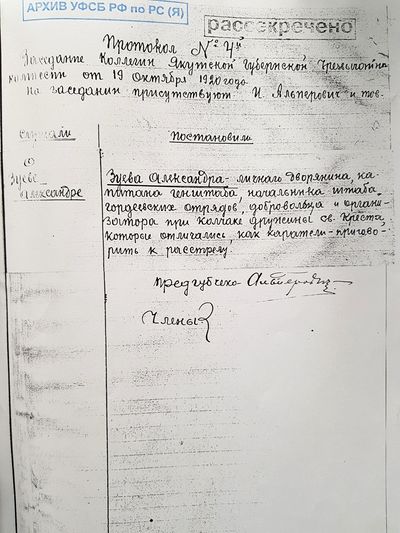 АРХИВ УФСБ РФ по РС (Я)
рассекречено
Протокол № 4й
Заседание Коллегии Якутской Губернской Чрезвычайной
комиссии от 19 октября 1920 года
на заседании присутствуют И. Альперович и тов.
слушали
постановили
О
Зуеве
Александре
Зуева Александра- личного дворянина, ка-
питана генштаба, начальника штаба
гордеевских отрядов, добровольца и органи-
затора при колчаке дружины св. Креста,
которые отличались, как каратели-пригово-
рить к расстрелу.
Предгубчека Альперович
Члены